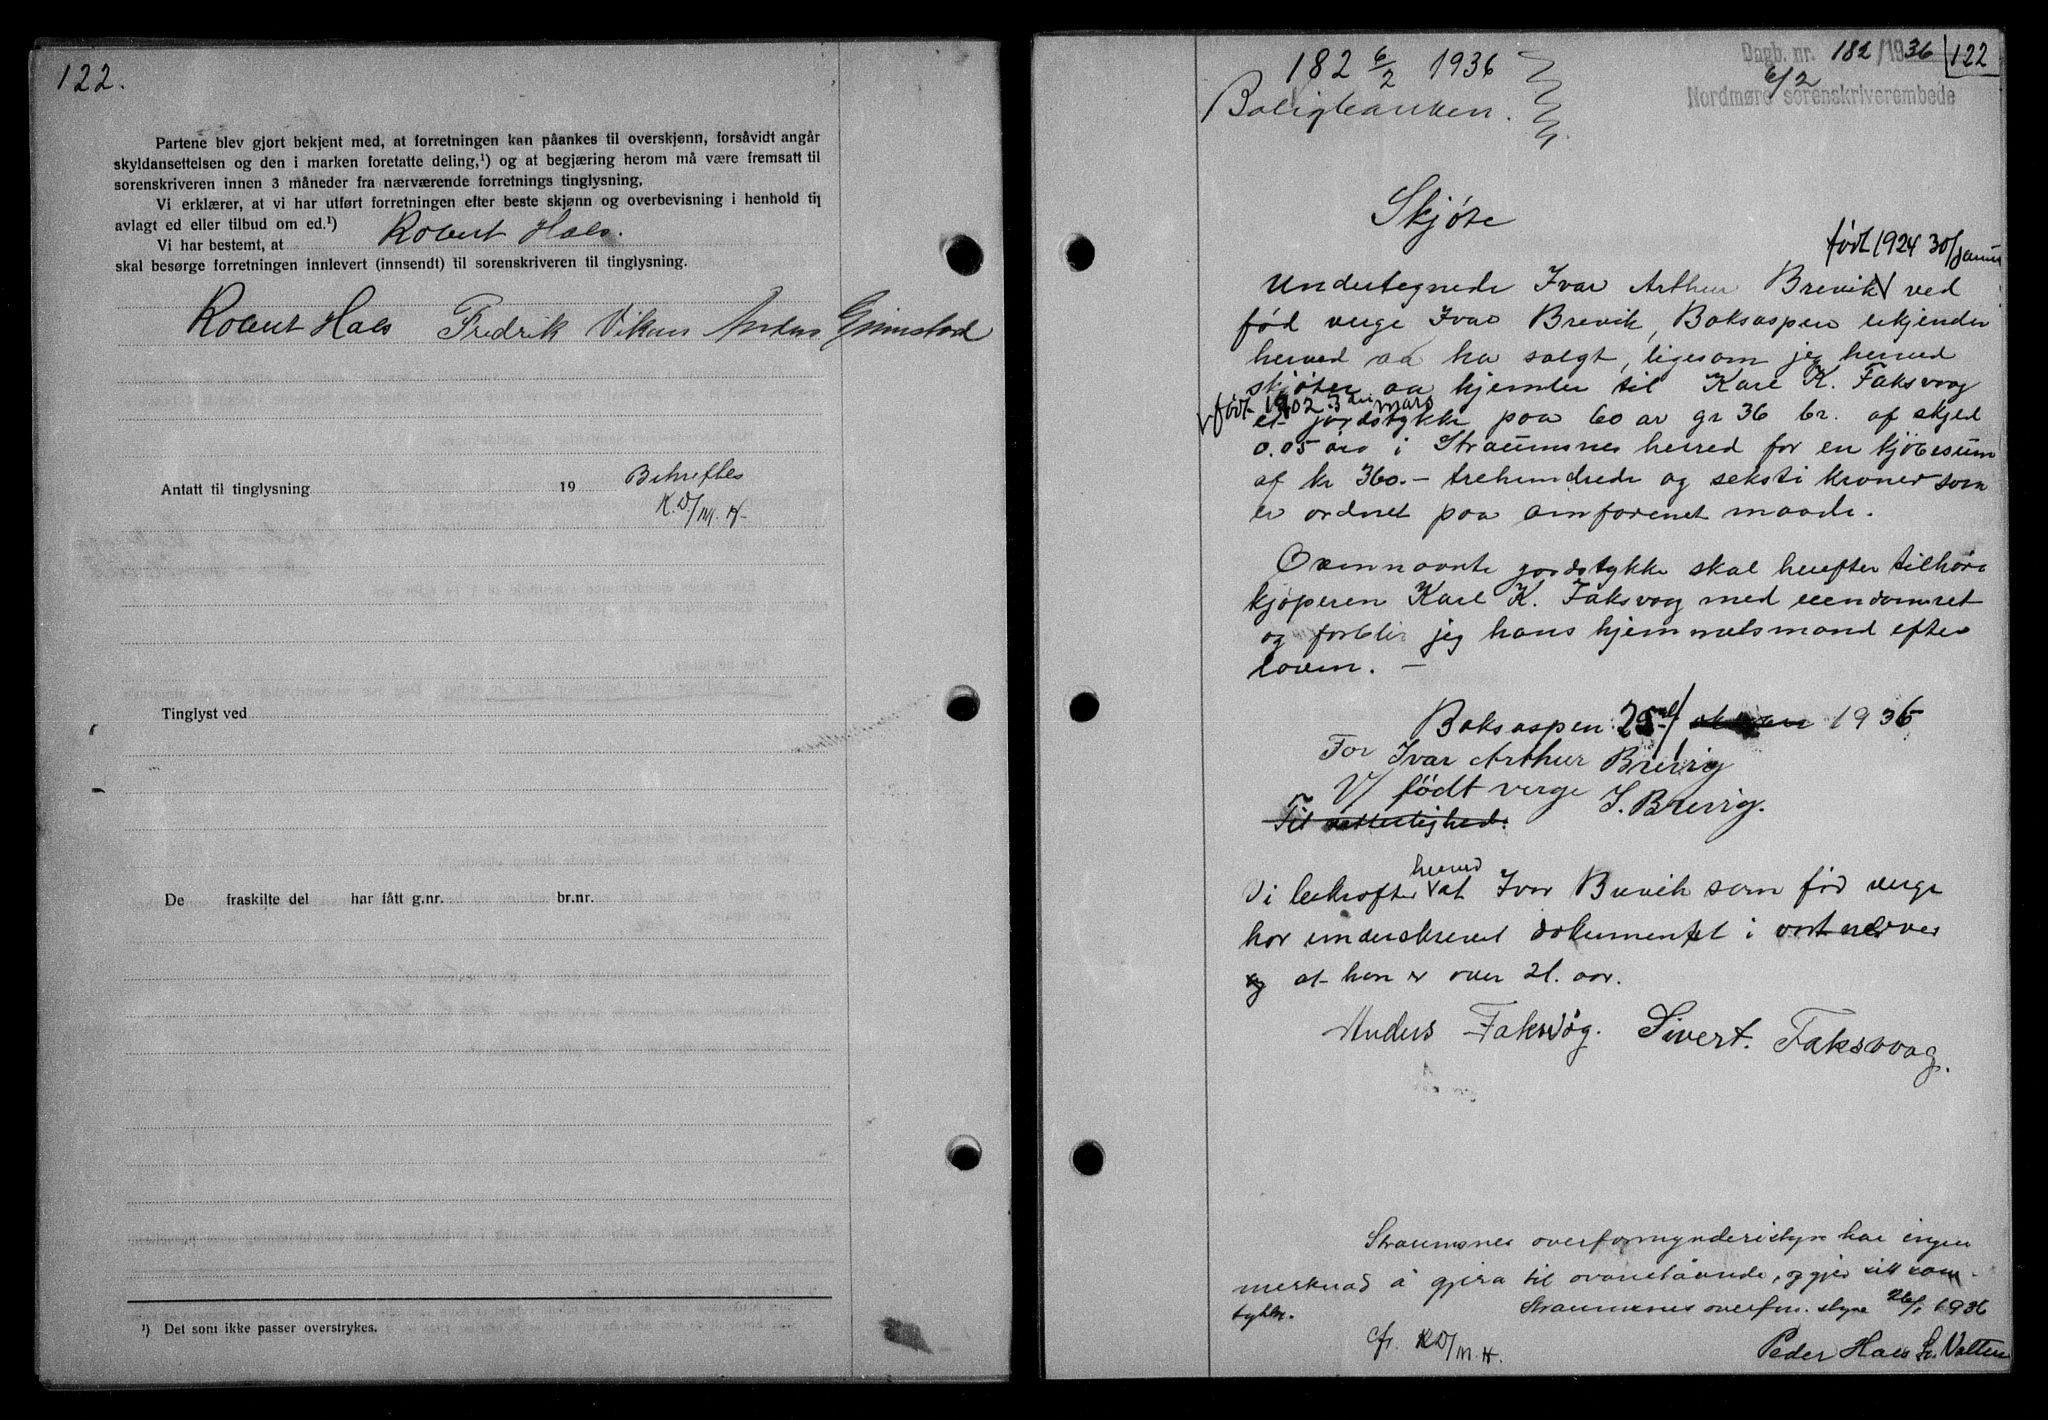 122.
Partene blev gjort bekjent med, at forretningen kan påankes til overskjønn, forsåvidt angår
skyldansettelsen og den i marken foretatte deling,¹) og at begjæring herom må være fremsatt til
sorenskriveren innen 3 måneder fra nærværende forretnings tinglysning.
Vi erklærer, at vi har utført forretningen efter beste skjønn og overbevisning i henhold til
avlagt ed eller tilbud om ed.¹)
Vi har bestemt, at Robert Hals.
skal besørge forretningen innlevert (innsendt) til sorenskriveren til tinglysning.
Robert Hals Fredrik Vikan Anders Grimstad
Antatt til tinglysning 19 Bekreftes
K.D/M.H
Tinglyst ved
De fraskilte del har fått g.nr. br.nr.
¹) Det som ikke passer overstrykes.
Dagb. nr. 182/1936 122
6/2
Nordmøre sorenskriverembede
182 6/2 1936
Boligbanken.
Skjøte
født 1924 30/januar
Undertegnede Ivar Arthur Brevik ved
fød verge Ivar Brevik, Boksaspen erkjender
herved aa ha solgt, ligesom jeg herved
skjøter aa hjemler til Karl K. Faksvaag
født 1902 3die mars
et jordstykke paa 60 ar gr 36 br. af skyld
0.05 øre i Straumsnes herred for en kjøbesum
af kr 360.- trehundrede og seksti kroner som
er ordnet paa omforenet maade.
Ovennævnte jordstykke skal herefter tilhøre
kjøperen Karl K. Faksvaag med eiendomsret
og forblir jeg hans hjemmelsmand efter
loven. -
Boksaspen 25 1936
For Ivar Arthur Brevig
V/ født verge I. Brevig.
Til vitterlighed.
Vi bekrefter herved at Ivar Brevik som fød verge
har underskrevet dokumentet i vort nærvær
og at han er over 21. aar.
Anders Faksvåg. Sivert. Faksvaag.
Straumsnes overformynderistyre har ingen
merknad å gjera til ovanståande, og gjev sitt sam-
tykke. Straumsnes overfm. styre 26/1 1936
Peder Hals
cfr. KD/M.H.